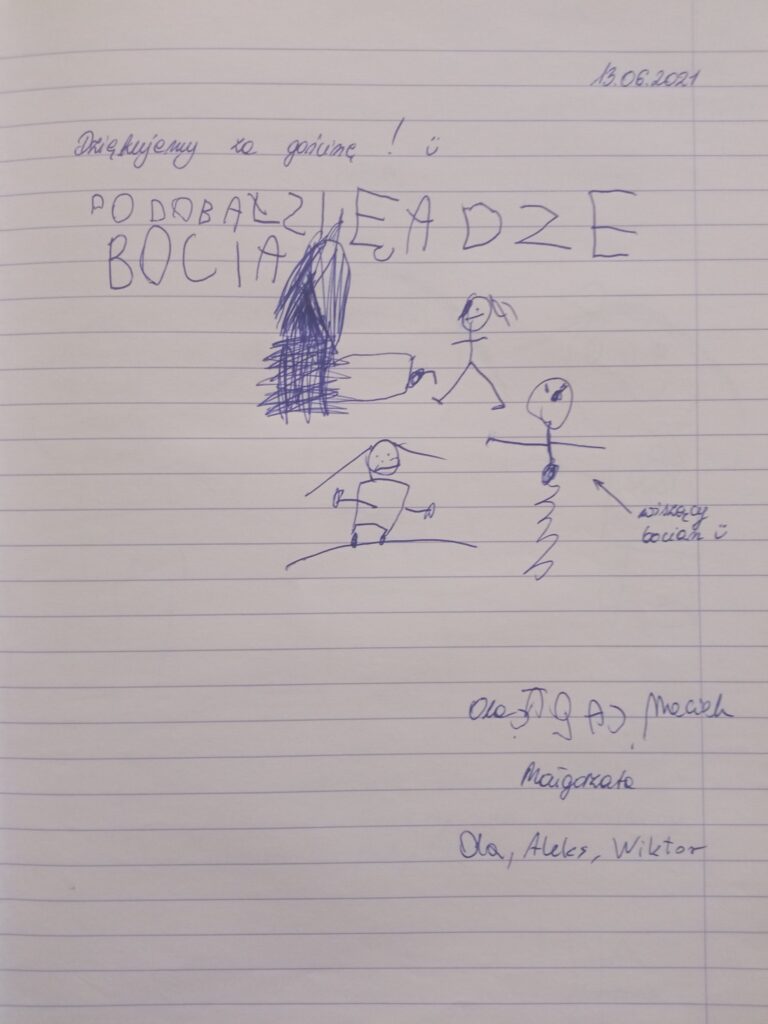 13.06.2021
Dziękujemy za gościnę! ☺
BOCIA
wiszący
bocian ☺
Ola Maciek
Małgorzata
Ola, Aleks, Wiktor